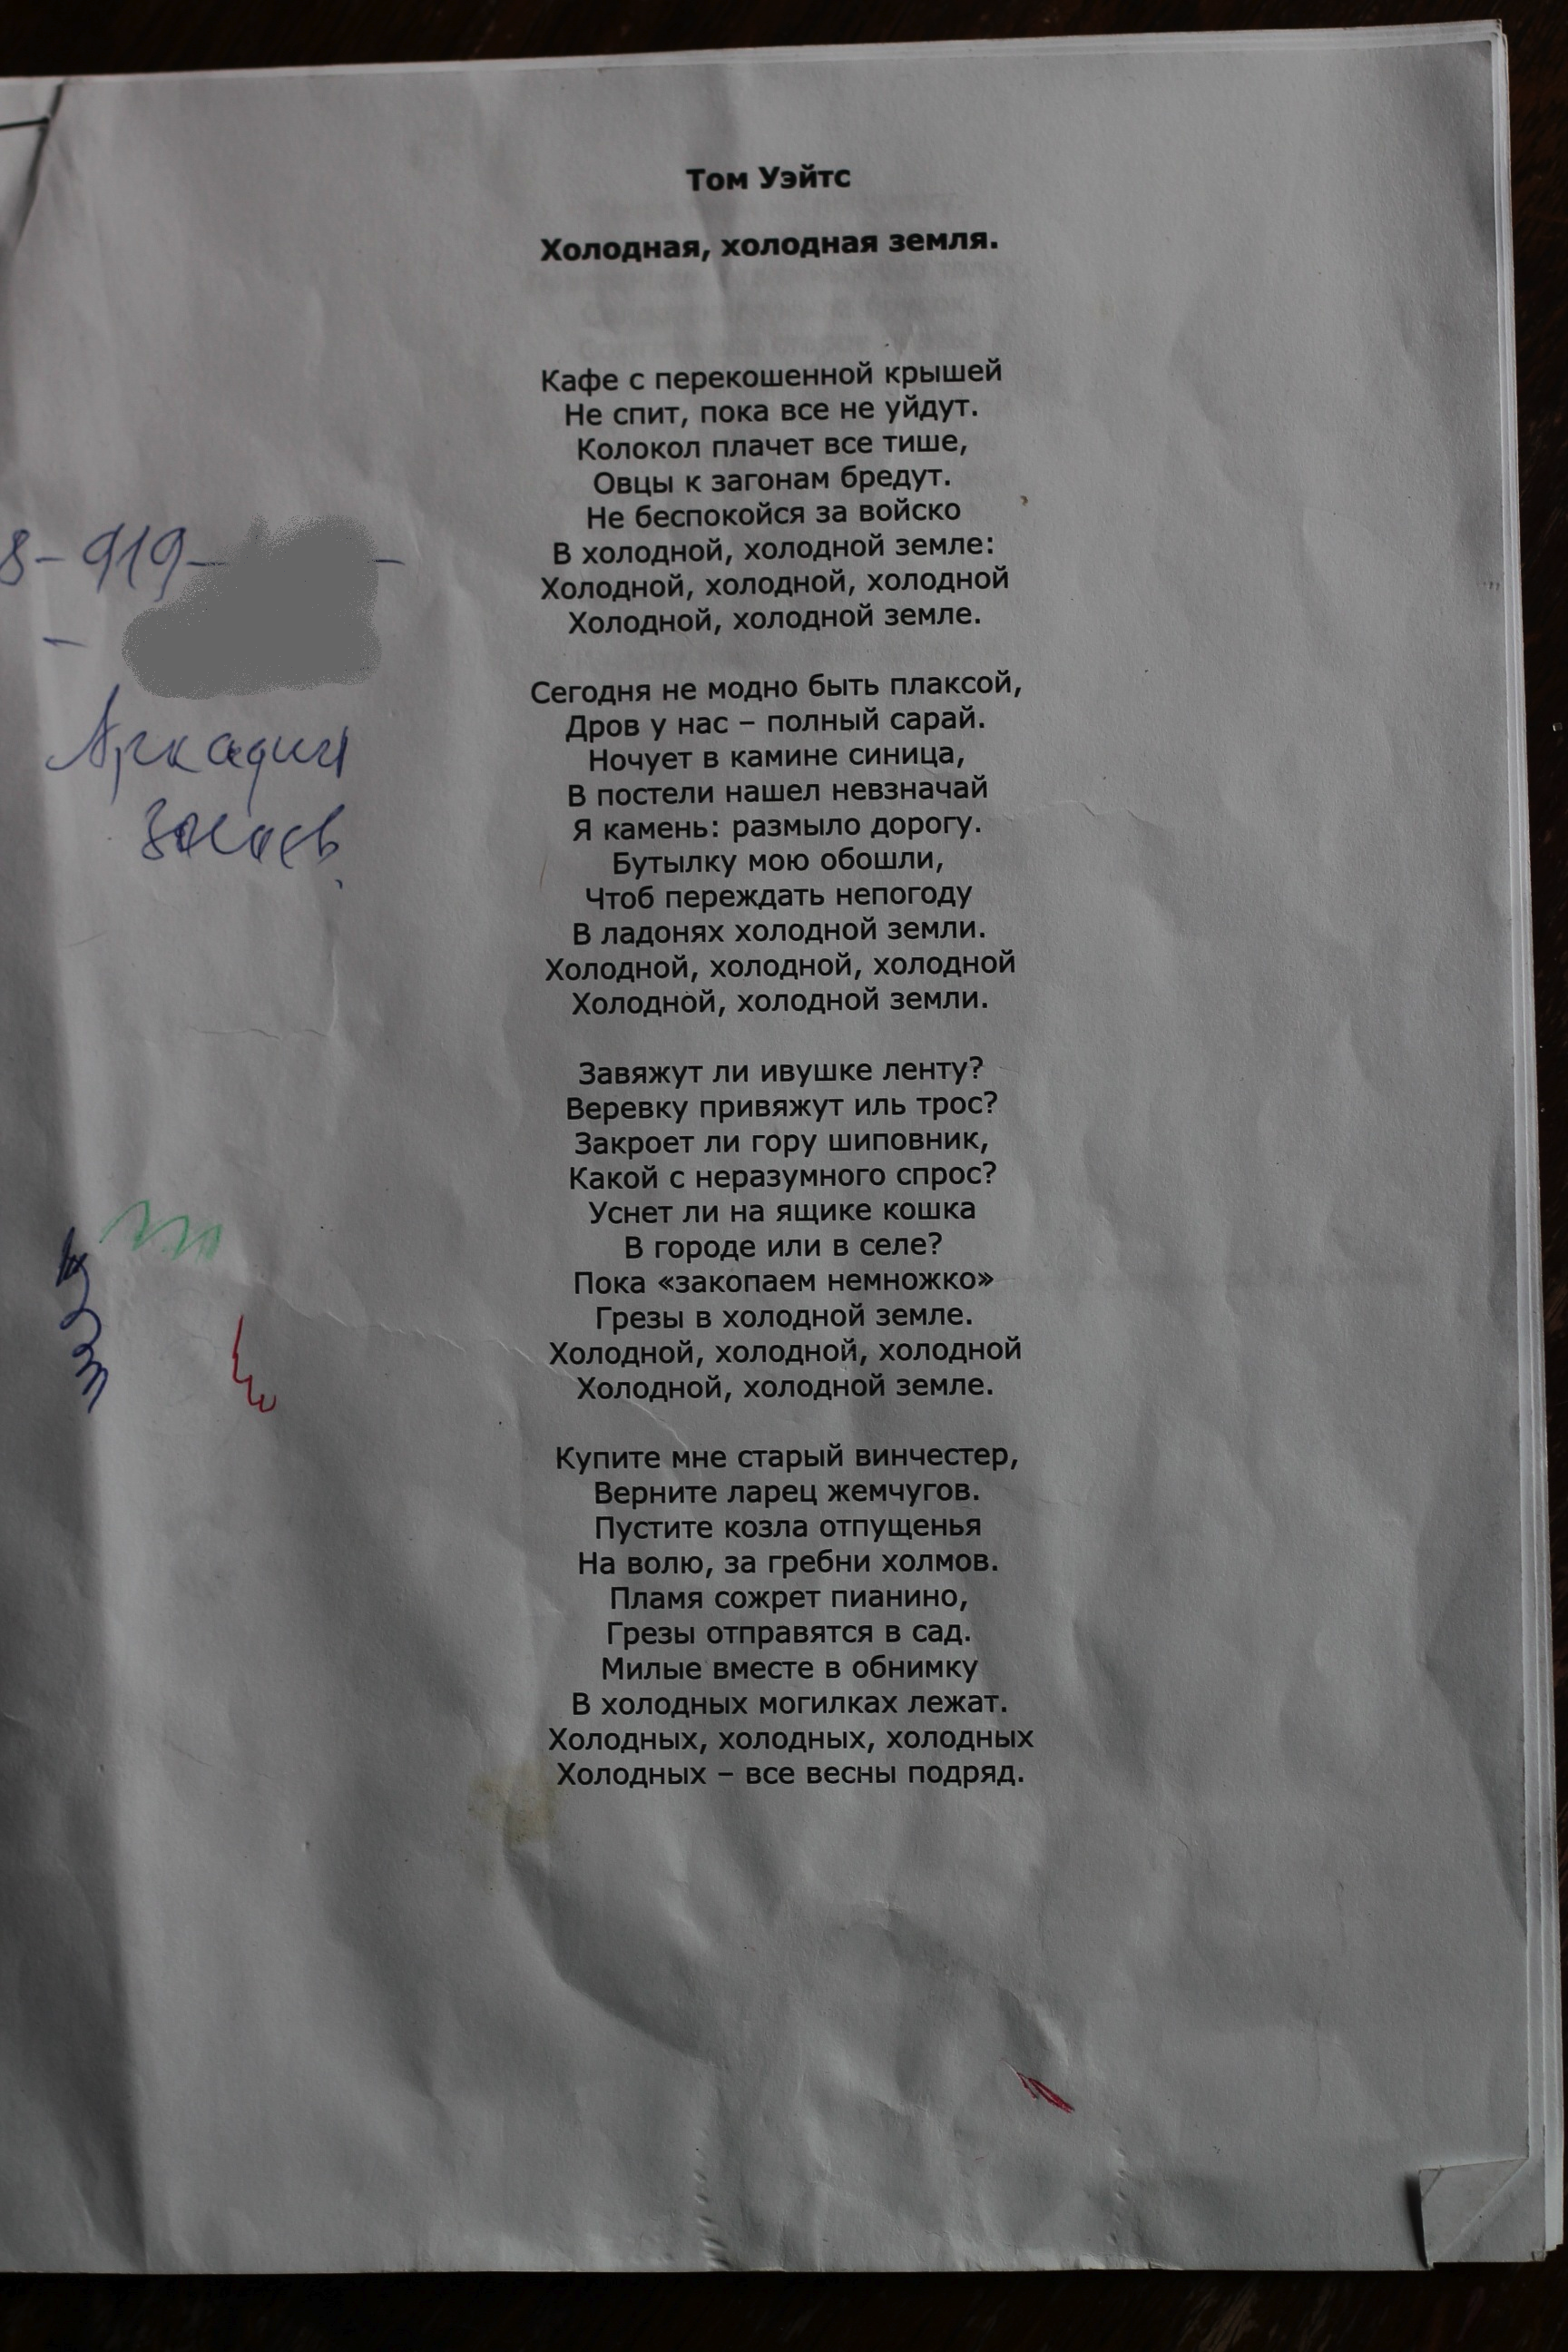 Том Уэйтс
Холодная, холодная земля.
Кафе с перекошенной крышей
Не спит, пока все не уйдут.
Колокол плачет все тише,
Овцы к загонам бредут.
Не беспокойся за войско
В холодной, холодной земле:
Холодной, холодной, холодной
Холодной, холодной земле.
Сегодня не модно быть плаксой,
Дров у нас – полный сарай.
Ночует в камине синица,
В постели нашел невзначай
Я камень: размыло дорогу.
Бутылку мою обошли,
Чтоб переждать непогоду
В ладонях холодной земли.
Холодной, холодной, холодной
Холодной, холодной земли.
Завяжут ли ивушке ленту?
Веревку привяжут иль трос?
Закроет ли гору шиповник,
Какой с неразумного спрос?
Уснет ли на ящике кошка
В городе или в селе?
Пока «закопаем немножко»
Грезы в холодной земле.
Холодной, холодной, холодной
Холодной, холодной земле.
Купите мне старый винчестер,
Верните ларец жемчугов.
Пустите козла отпущенья
На волю, за гребни холмов.
Пламя сожрет пианино,
Грезы отправятся в сад.
Милые вместе в обнимку
В холодных могилках лежат.
Холодных, холодных, холодных
Холодных – все весны подряд.
8-919-
Аркадий